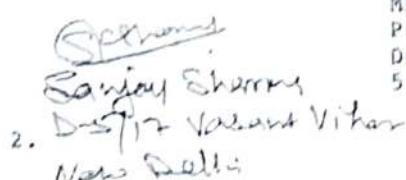 Sanjay Sharma
2. D-5/12 Vasant Vihar
New Delhi
M
P
D
5